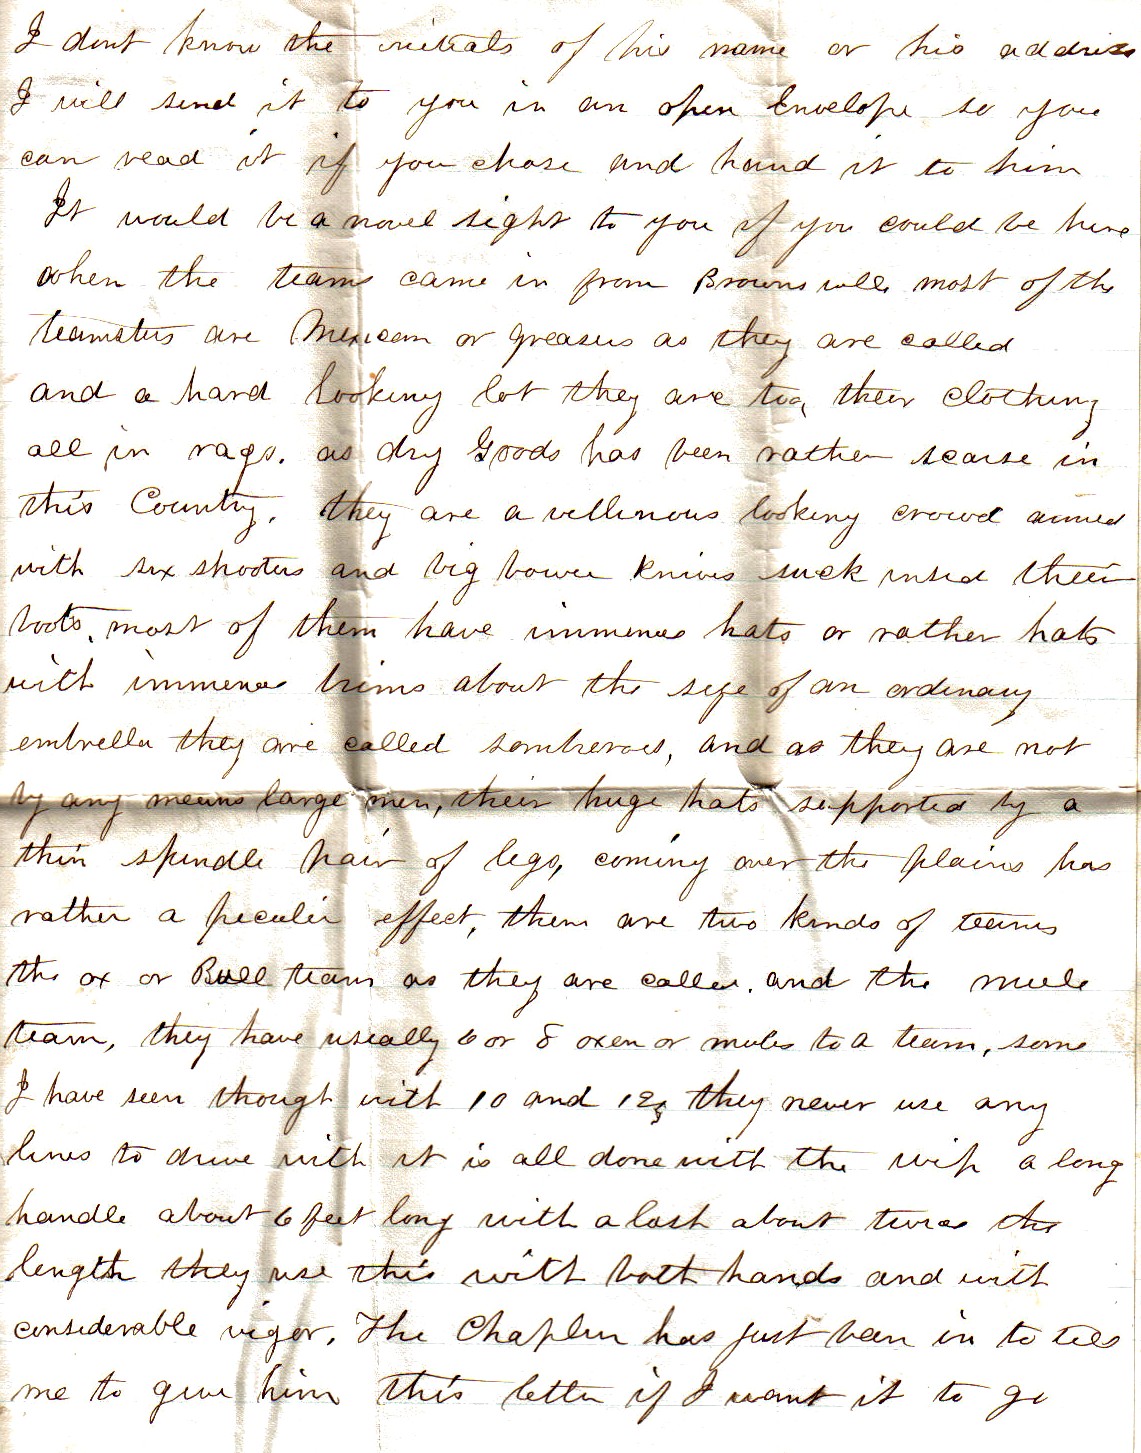 I dont know the initials of his name or his address
I will send it to you in an open Envelope so you
can read it if you chose and hand it to him
It would be a novel sight to you if you could be here
when the teams came in from Brownsville most of the
teamsters are Mexican or greasers as they are called
and a hard looking lot they are too, their clothing
all in rags. as dry Goods has been rather scarse in
this Country. they are a villinous looking crowd armed
with six shooters and big bowie knives stuck insid their
boots, most of them have immense hats or rather hats
with immense brims about the size of an ordinary
embrella they are called sombreros, and as they are not
by any means large men, their huge hats supported by a
thin spindle pair of legs, coming over the plains has
rather a peculir effect, them are two kinds of teams
the ox or Bull team as they are called. and the mule
team, they have useally 6 or 8 oxen or mules to a team, some
I have seen though with 10 and 12, they never use any
lines to drive with it is all done with the wip a long
handle about 6 feet long with a lash about twice the
length they use this with both hands and with
considerable viger. The Chaplin has just been in to tell
me to give him this letter if I want it to go